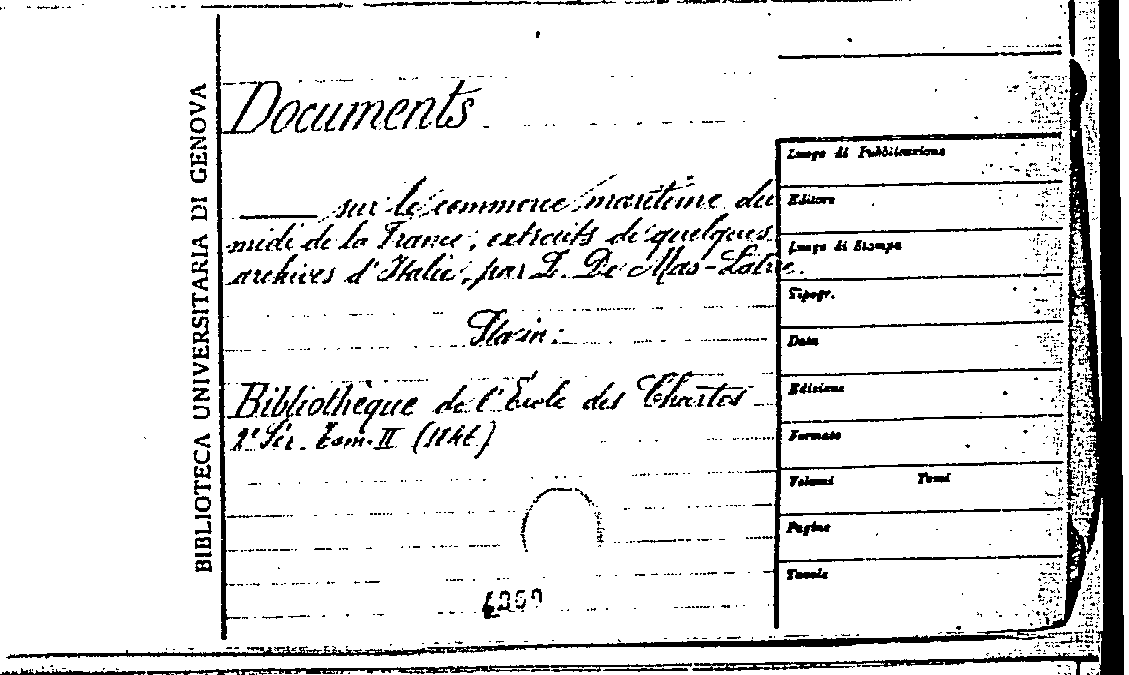 BIBLIOTECA UNIVERSITARIA DI GENOVA
Documents
sur le commerce maritime du
midi de la France, extraits de quelques
archives d'Italie, par L. De Mas-Latrie.
Sta in:
Bibliothèque de l'École des Chartes
2e Sér. Tom. II (1846)
Luogo di Pubblicazione
Editore
Luogo di Stampa
Tipogr.
Data
Edizione
Formato
Volumi Tomi
Pagine
Tavole